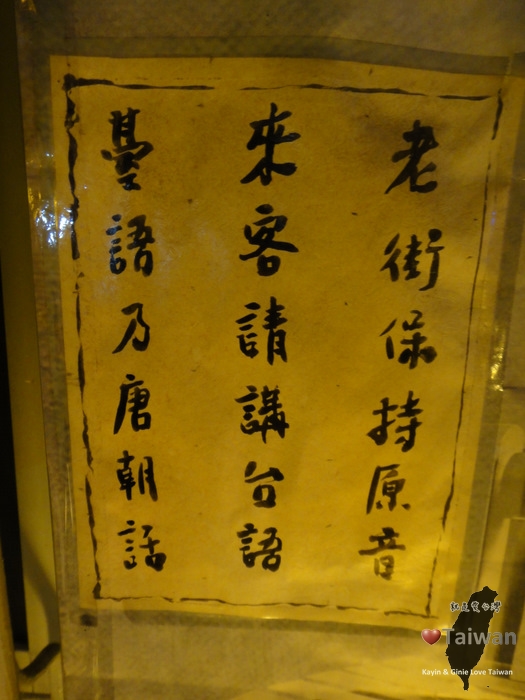 老街保持原音
來客請講台語
臺語乃唐朝話
就是愛台灣
Taiwan
Kayin & Ginie Love Taiwan